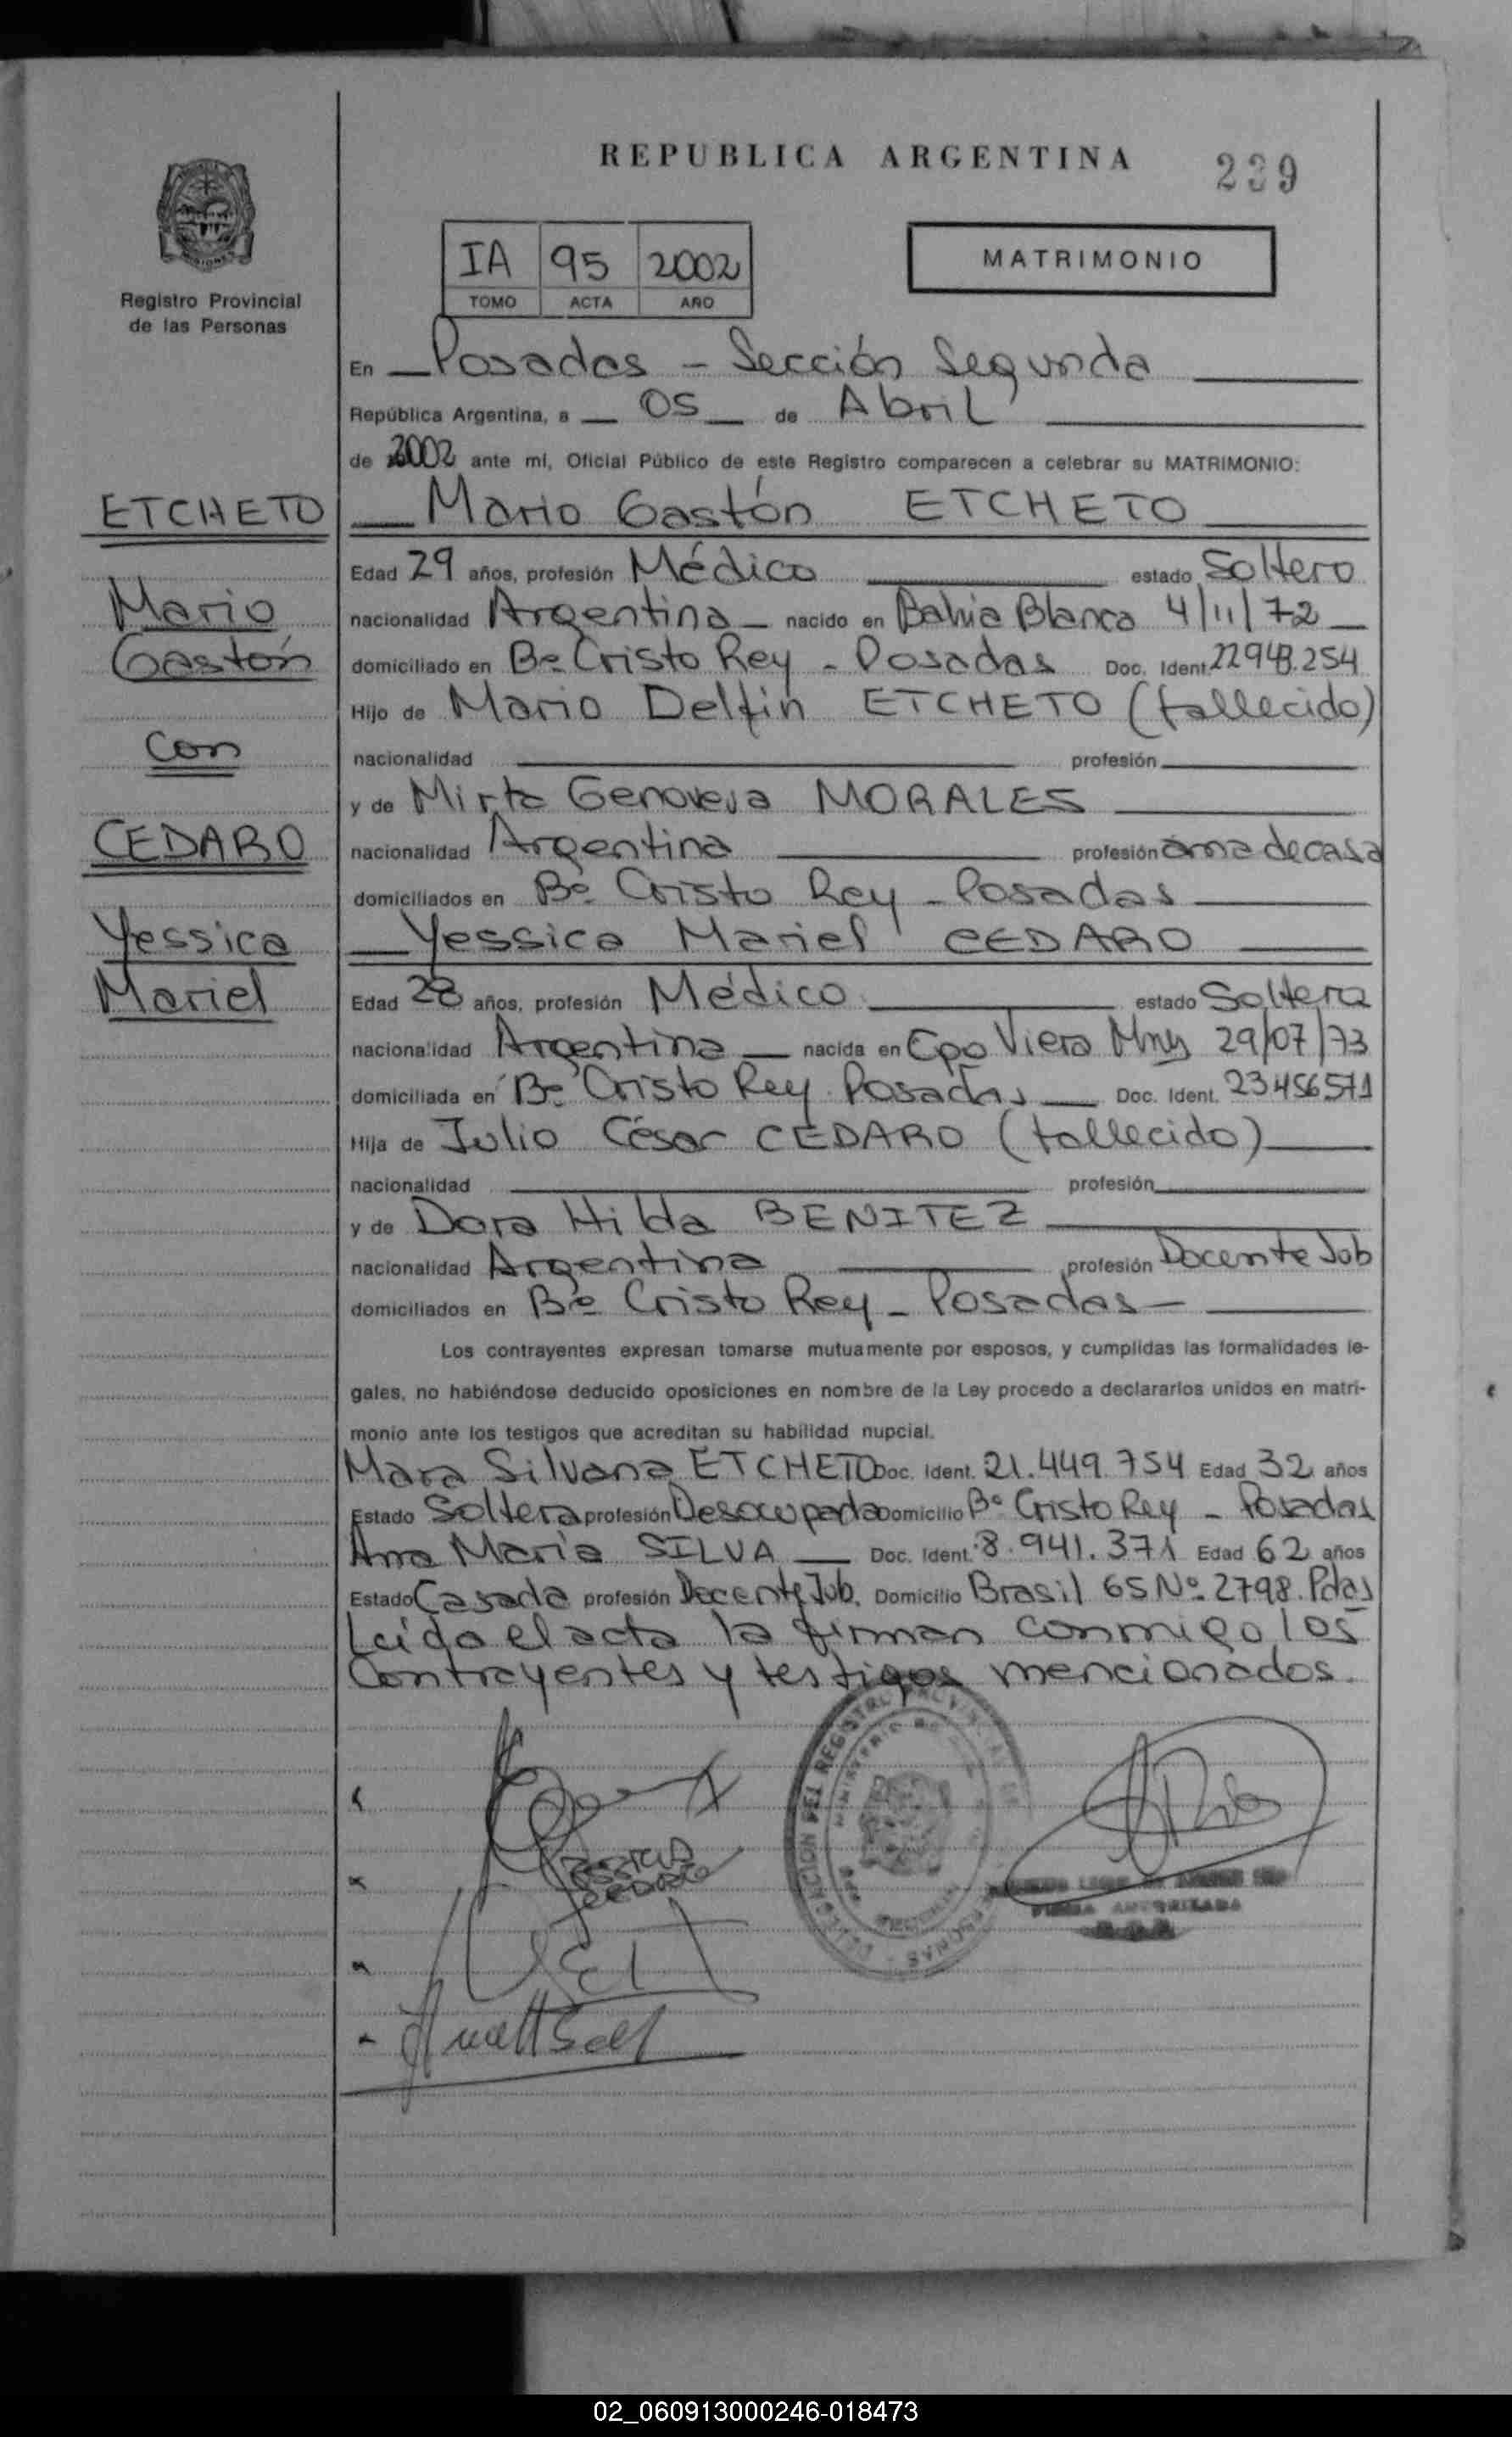 REPUBLICA ARGENTINA
239
IA 95 2002
TOMO ACTA AÑO
MATRIMONIO
MISIONES
Registro Provincial
de las Personas
En Posadas - Sección Segunda
República Argentina, a 05 de Abril
de 2002 ante mí, Oficial Público de este Registro comparecen a celebrar su MATRIMONIO:
ETCHETO
Mario
Gastón
con
CEDARO
Yessica
Mariel
Mario Gastón ETCHETO
Edad 29 años, profesión Médico estado Soltero
nacionalidad Argentina nacido en Bahia Blanca 4/11/72
domiciliado en Bº Cristo Rey - Posadas Doc. Ident. 22948.254
Hijo de Mario Delfin ETCHETO (fallecido)
nacionalidad profesión
y de Mirta Genoveva MORALES
nacionalidad Argentina profesión ama de casa
domiciliados en Bº Cristo Rey - Posadas
Yessica Mariel CEDARO
Edad 28 años, profesión Médico estado Soltera
nacionalidad Argentina nacida en Cpo Viera Mnes 29/07/73
domiciliada en Bº Cristo Rey Posadas Doc. Ident. 23456571
Hija de Julio César CEDARO (fallecido)
nacionalidad profesión
y de Dora Hilda BENITEZ
nacionalidad Argentina profesión Docente Jub
domiciliados en Bº Cristo Rey - Posadas
Los contrayentes expresan tomarse mutuamente por esposos, y cumplidas las formalidades le-
gales, no habiéndose deducido oposiciones en nombre de la Ley procedo a declararlos unidos en matri-
monio ante los testigos que acreditan su habilidad nupcial.
Mara Silvana ETCHETO Doc. Ident. 21.449.754 Edad 32 años
Estado Soltera profesión Desocupada Domicilio Bº Cristo Rey - Posadas
Ana Maria SILVA Doc. Ident. 8.941.371 Edad 62 años
Estado Casada profesión Docente Jub. Domicilio Brasil 65 Nº 2798. Pdas
Leída el acta la firman conmigo los
Contrayentes y testigos mencionados.
YESSICA
CEDARO
FIRMA AUTORIZADA
02_060913000246-018473